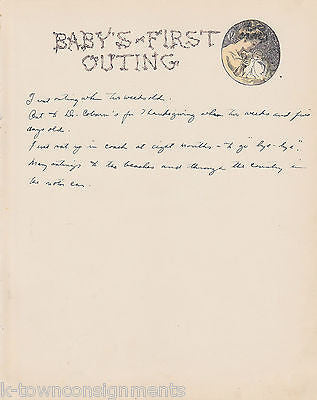 BABY'S FIRST
OUTING
I went outing when two weeks old.
Out to Dr. Coburn's for Thanksgiving when two weeks and five
days old.
I would sit up in coach at eight months - to go "bye-bye".
Many outings to the beaches and through the country in
the motor car.
k-townconsignments